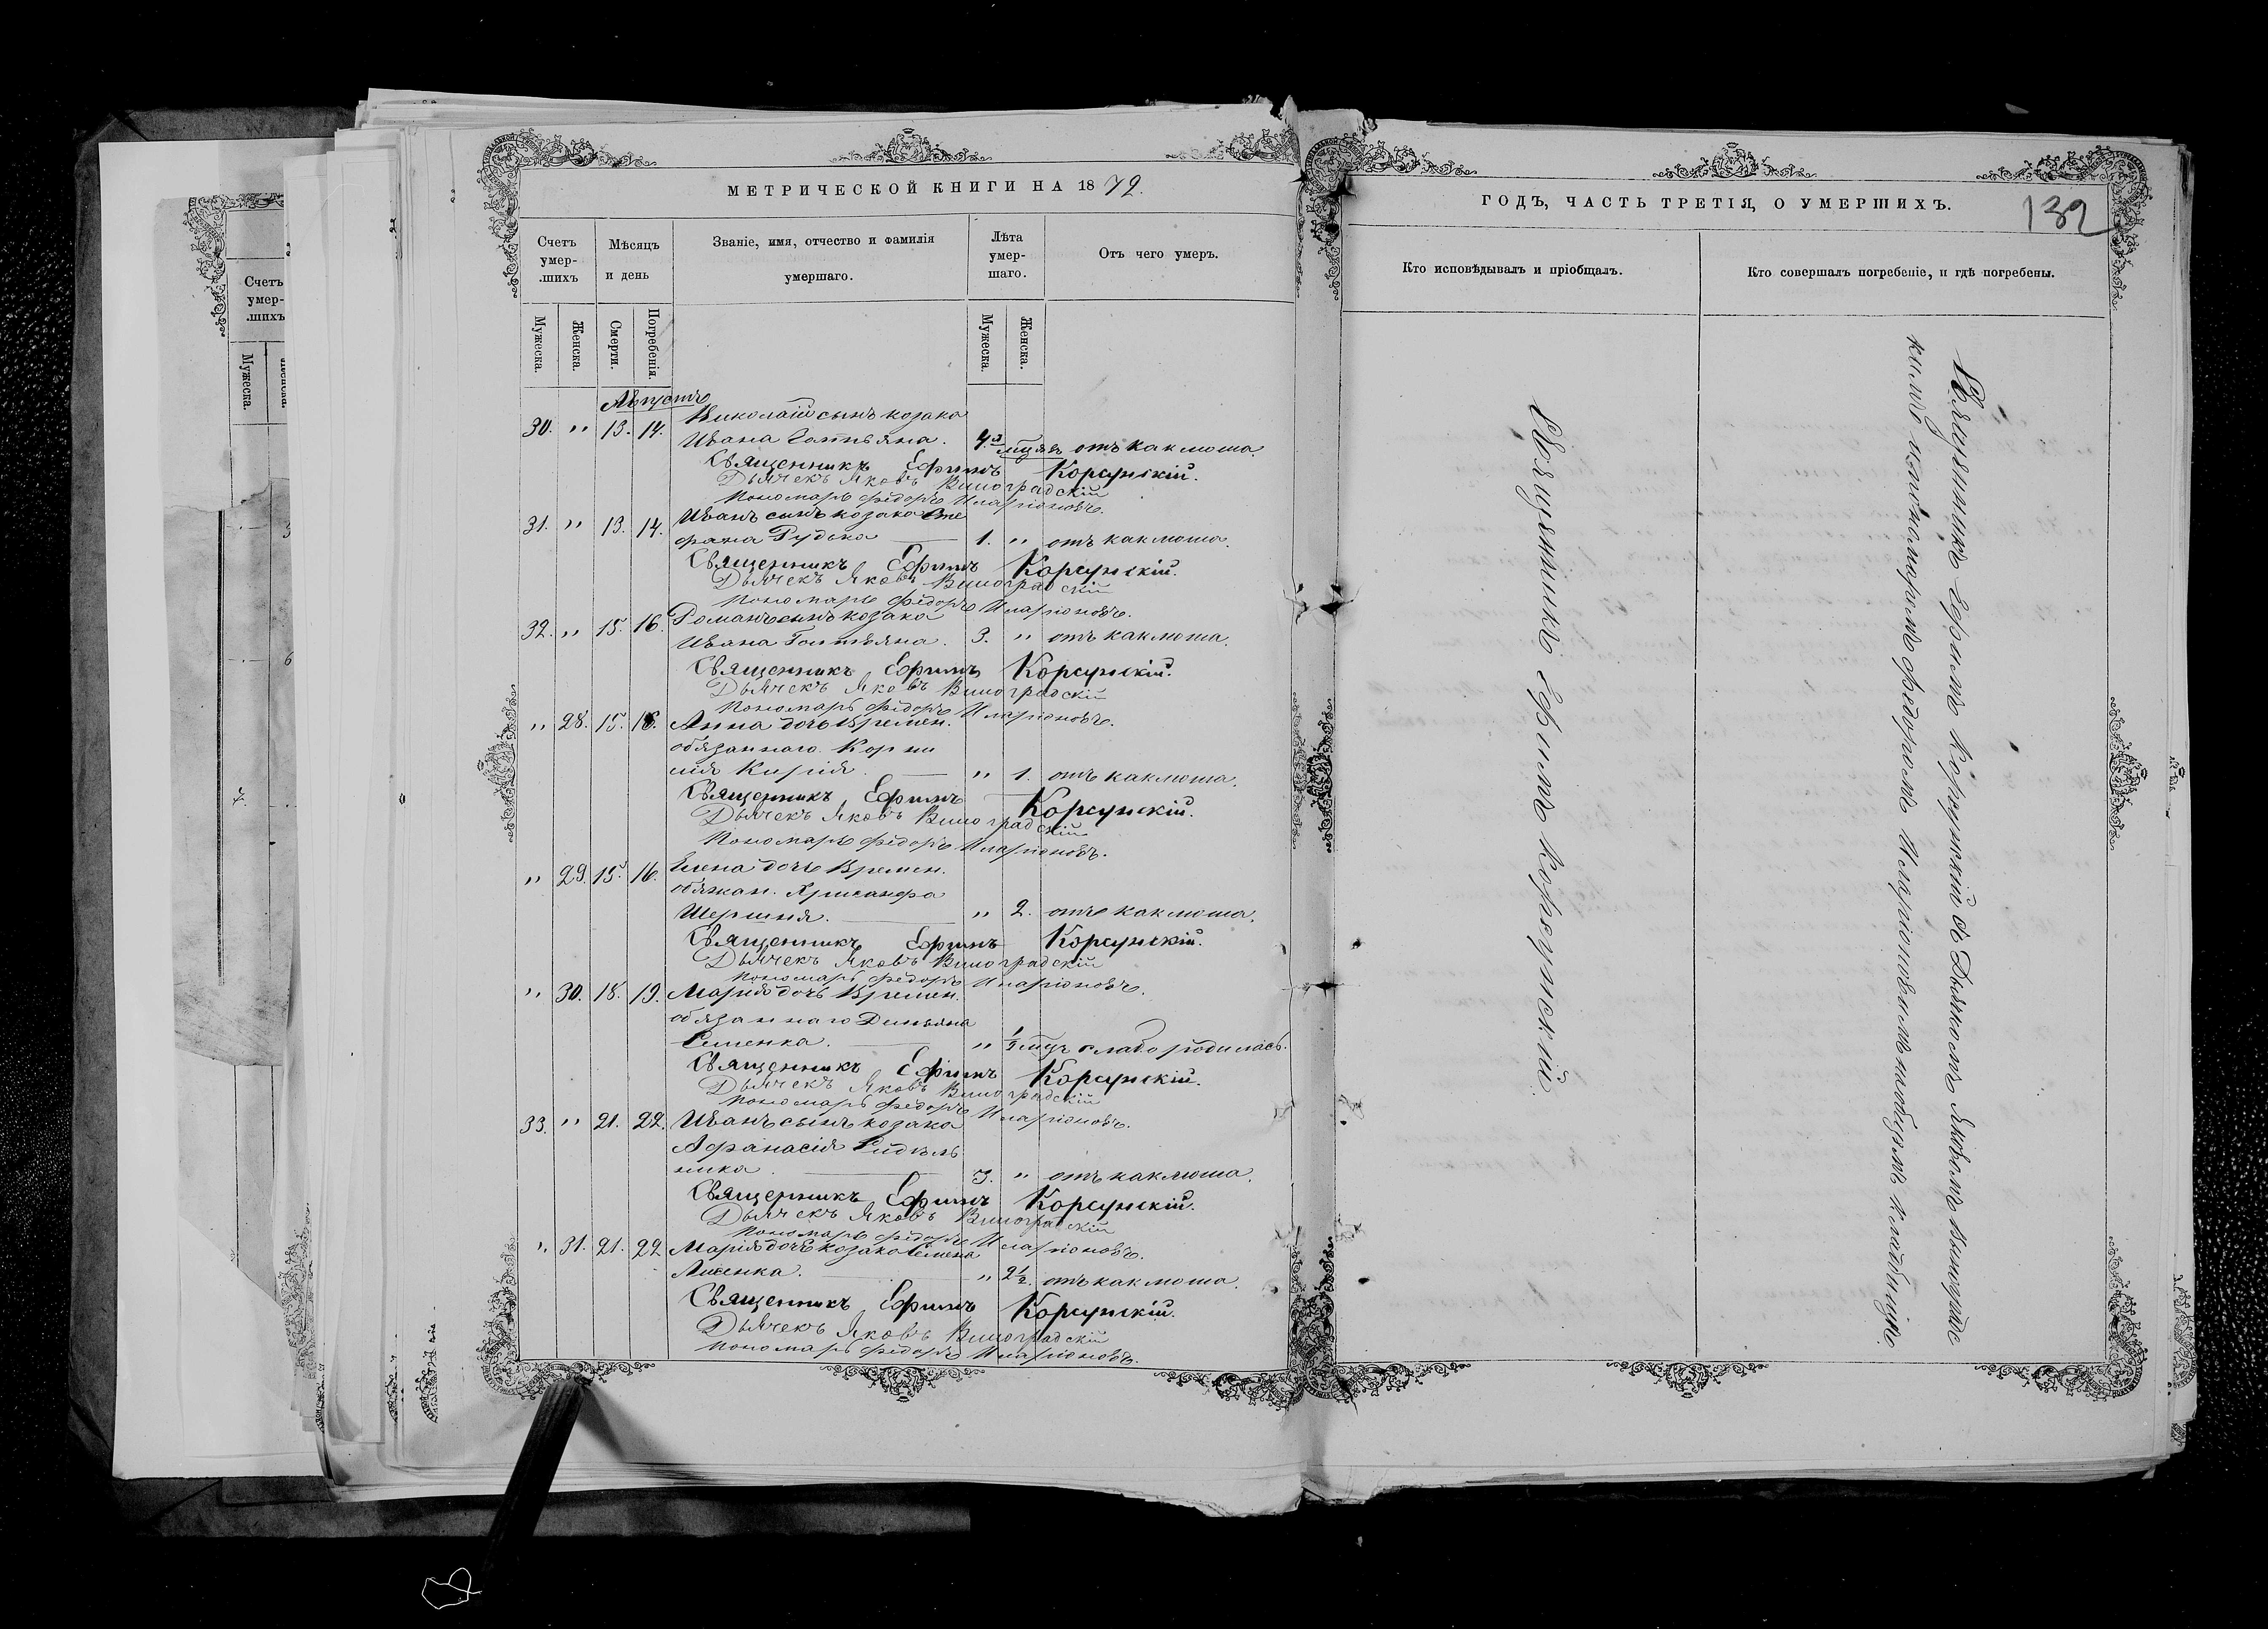 МЕТРИЧЕСКОЙ КНИГИ НА 1872.
Счетъ умер-шихъ
Мѣсяцъ и день
Званіе, имя, отчество и фамилія умершаго.
Лѣта умер-шаго.
Отъ чего умеръ.
Мужеска.
Женска.
Смерти.
Погребенія.
Мужеска.
Женска.
Августъ
Николай сынъ козака
30. " 13. 14. Ивана 4 отъ каклюша.
Священникъ Ефимъ Корсунскій.
Дьячекъ Яковъ Виноградскій
Пономарь Федоръ Иларіоновъ.
31. " 13. 14. Иванъ сынъ козака Сте
фана Рудька 1. " отъ каклюша.
Священникъ Ефимъ Корсунскій.
Дьячекъ Яковъ Виноградскій
Пономарь Федоръ Иларіоновъ.
32. " 15. 16. Романъ сынъ козака
Ивана 3. " отъ каклюша.
Священникъ Ефимъ Корсунскій.
Дьячекъ Яковъ Виноградскій
Пономарь Федоръ Иларіоновъ.
" 28. 15. 16. Анна дочь Времен.
обязаннаго Корни
лія Кирія. " 1. отъ каклюша.
Священникъ Ефимъ Корсунскій.
Дьячекъ Яковъ Виноградскій
Пономарь Федоръ Иларіоновъ.
" 29. 15. 16. Елена дочь Времен.
обязан. Хрисанфа
Шершня. " 2. отъ каклюша.
Священникъ Ефимъ Корсунскій.
Дьячекъ Яковъ Виноградскій
Пономарь Федоръ Иларіоновъ.
" 30. 18. 19. Марія дочь Времен.
обязаннаго Демьяна
Семенка. " слабо родилась.
Священникъ Ефимъ Корсунскій.
Дьячекъ Яковъ Виноградскій
Пономарь Федоръ Иларіоновъ.
33. " 21. 22. Иванъ сынъ козака
Афанасія Сидѣль
ника. 3. " отъ каклюша.
Священникъ Ефимъ Корсунскій.
Дьячекъ Яковъ Виноградскій
Пономарь Федоръ Иларіоновъ.
" 31. 21. 22. Марія дочь козака Семена
Лисенка. " 2½. отъ каклюша.
Священникъ Ефимъ Корсунскій.
Дьячекъ Яковъ Виноградскій
Пономарь Федоръ Иларіоновъ.
ГОДЪ, ЧАСТЬ ТРЕТІЯ, О УМЕРШИХЪ.
132
Кто исповѣдывалъ и пріобщалъ.
Кто совершалъ погребеніе, и гдѣ погребены.
Священникъ Ефимъ Корсунскій.
Священникъ Ефимъ Корсунскій съ Дьячкомъ Яковомъ Виноградс
кимъ и пономаремъ Федоромъ Иларіоновымъ на общемъ кладбищѣ
Счетъ умер-шихъ
Мужеска.